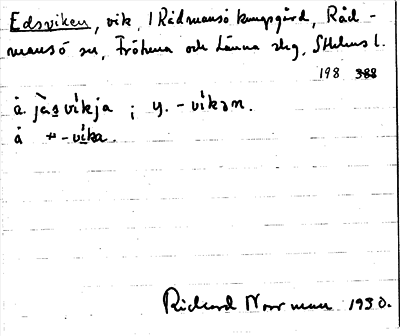 Edsviken, vik, 1 Rådmansö kungsgård, Råd-
mansö sn, Frötuna och Länna skg, Sthlms l.
198 388
ä. jàsvíkja ; y. -víkən.
å "-víka.
Rickard Norrman 1930.